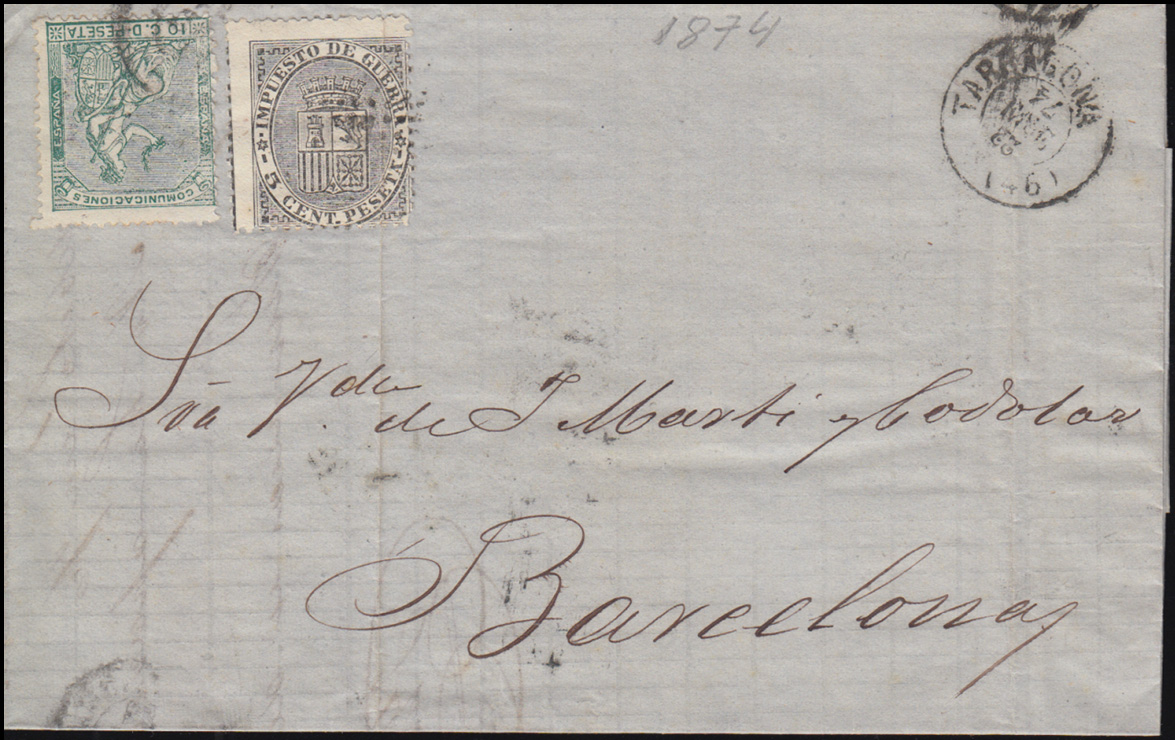 10 C. D PESETA
ESPAÑA
ESPAÑA
COMUNICACIONES
IMPUESTO DE GUERRA
5 CENT. PESETA
1874
TARRAGONA
74
23
(46)
Sra Vda de J Marti y Codolar
Barcelona